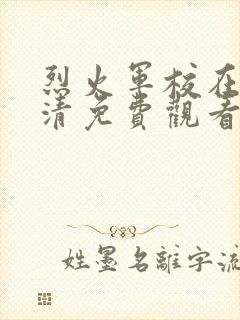 烈火軍校在
清免費觀看
姓墨名離字流